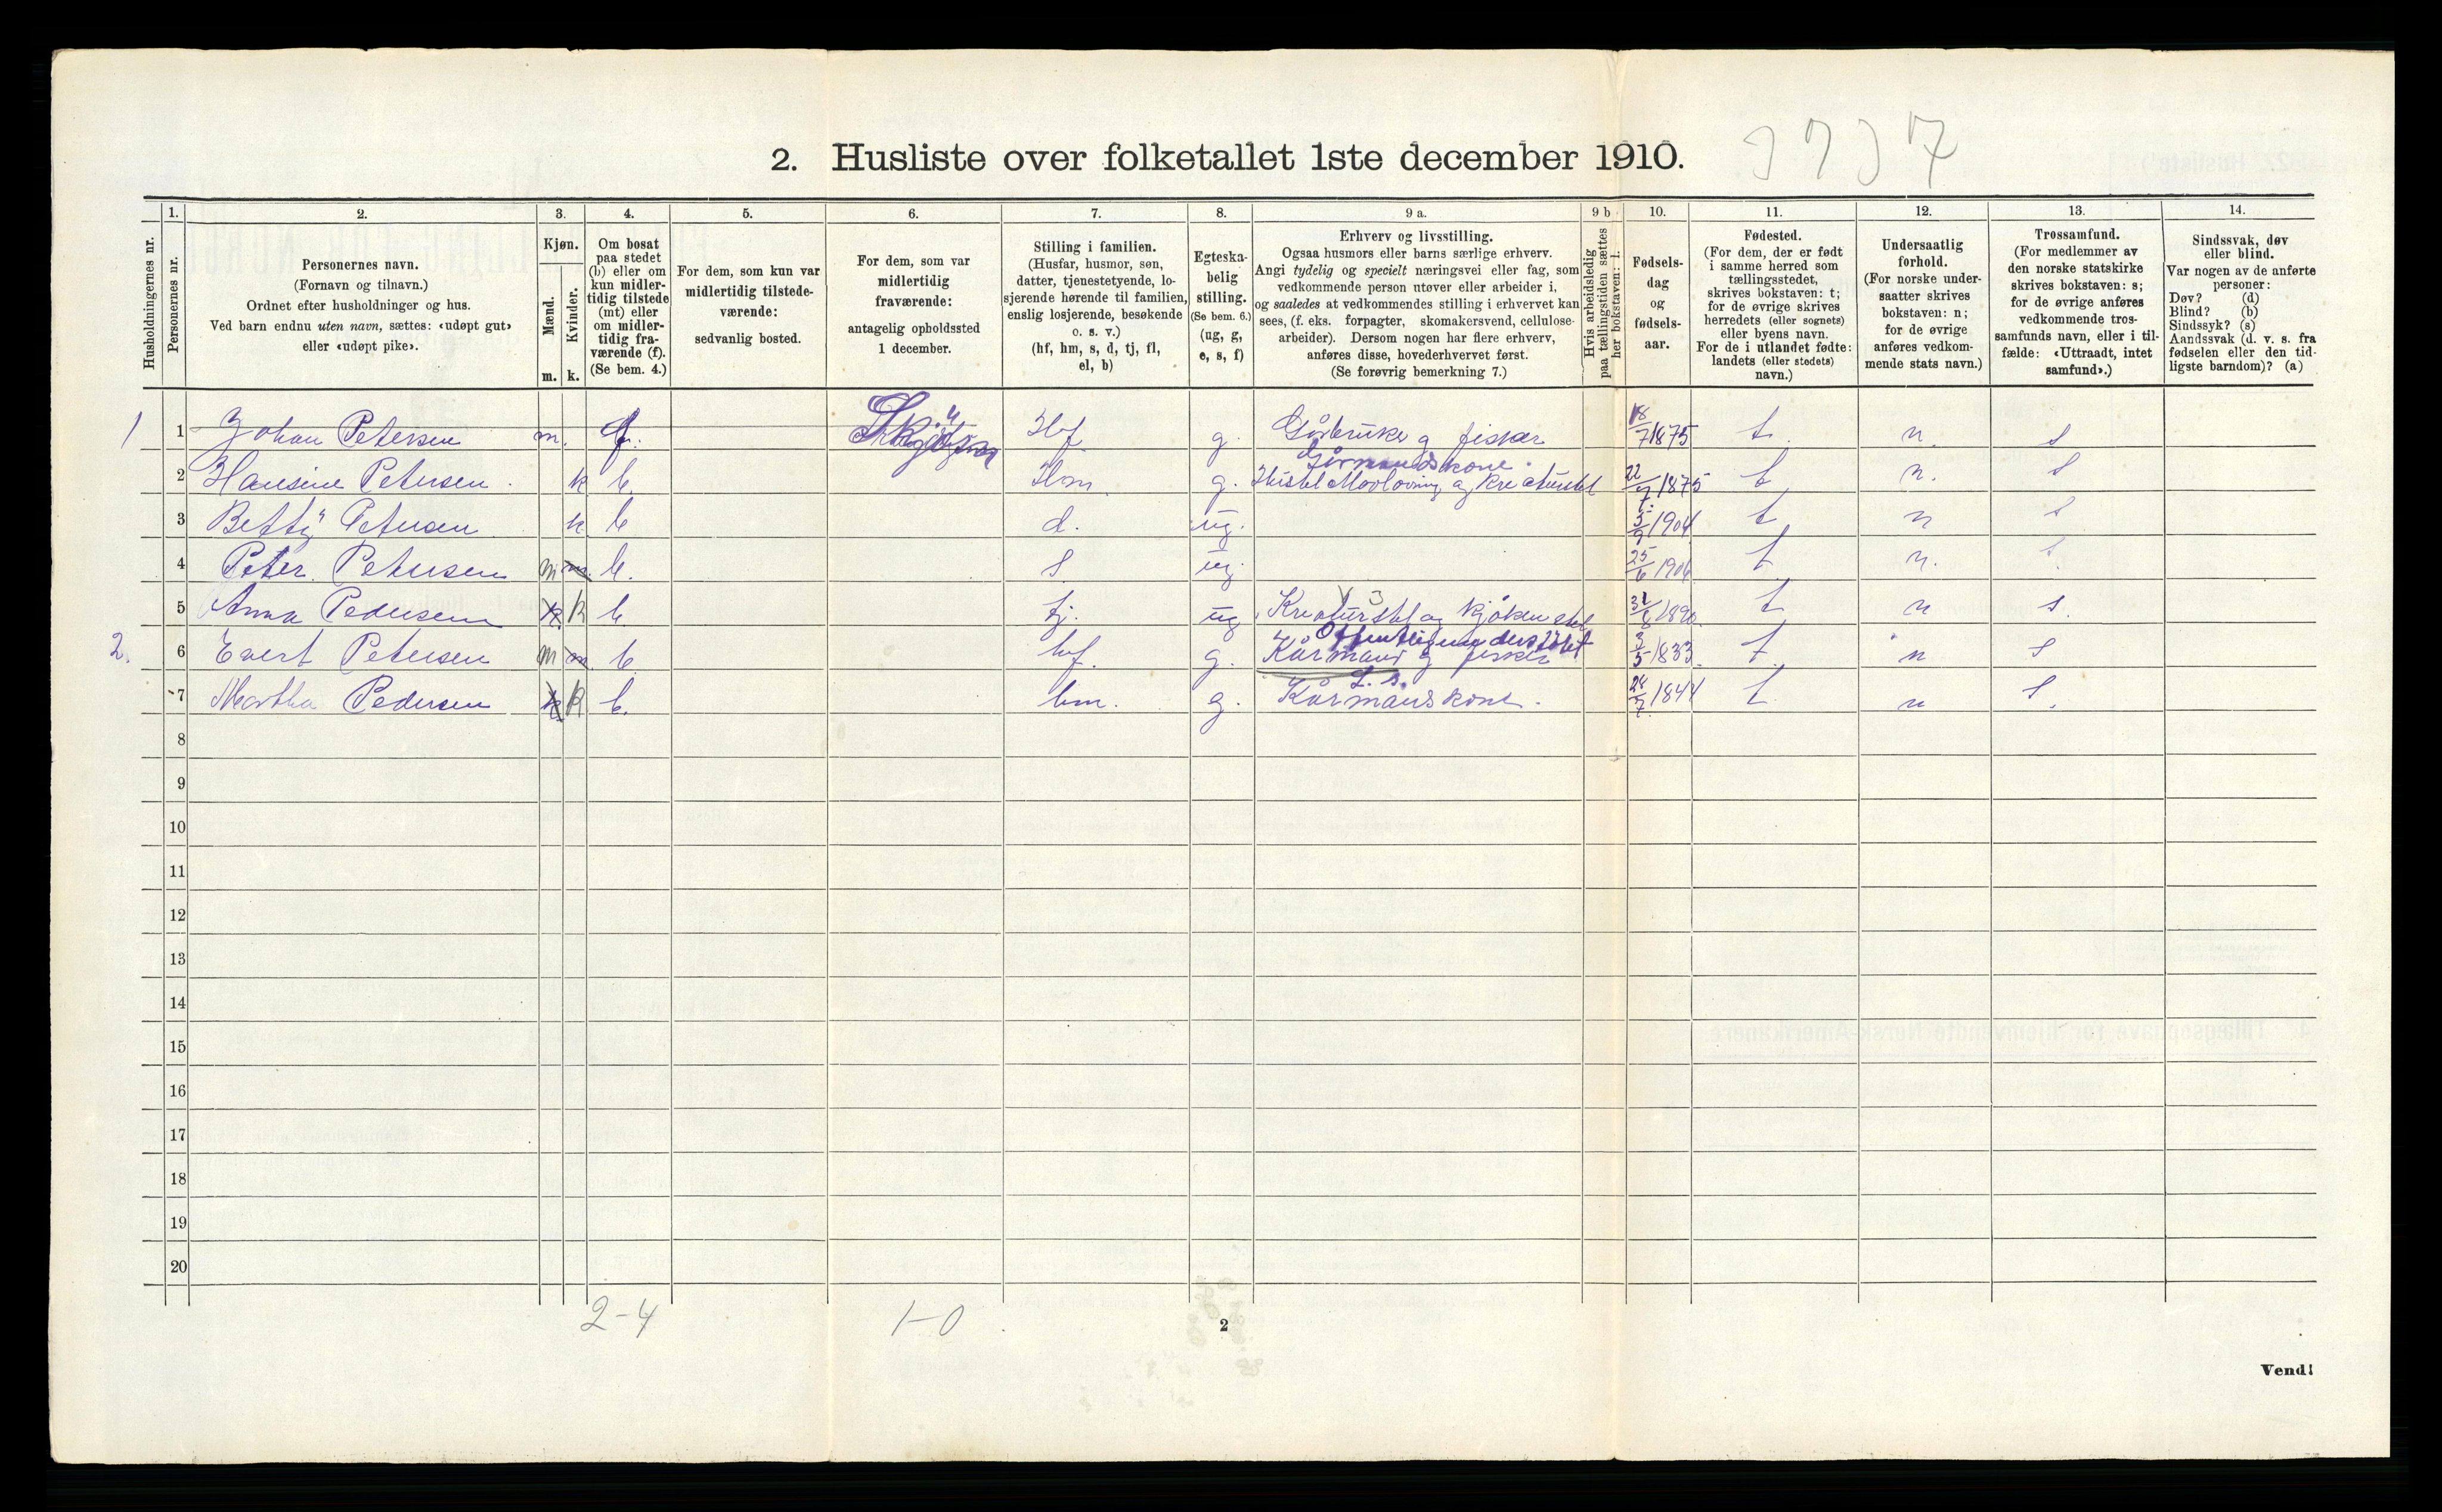 2. Husliste over folketallet 1ste december 1910.
1. 2. 3. 4. 5. 6. 7. 8. 9 a. 9 b 10. 11. 12. 13. 14.
Husholdningernes nr.
Personernes nr.
Personernes navn.
(Fornavn og tilnavn.)
Ordnet efter husholdninger og hus.
Ved barn endnu uten navn, sættes: «udøpt gut»
eller «udøpt pike».
Kjøn.
Mænd.
Kvinder.
m. k.
Om bosat
paa stedet
(b) eller om
kun midler-
tidig tilstede
(mt) eller
om midler-
tidig fra-
værende (f).
(Se bem. 4.)
For dem, som kun var
midlertidig tilstede-
værende:
sedvanlig bosted.
For dem, som var
midlertidig
fraværende:
antagelig opholdssted
1 december.
Stilling i familien.
(Husfar, husmor, søn,
datter, tjenestetyende, lo-
sjerende hørende til familien,
enslig losjerende, besøkende
o. s. v.)
(hf, hm, s, d, tj, fl,
el, b)
Egteska-
belig
stilling.
(Se bem. 6.)
(ug, g,
e, s, f)
Erhverv og livsstilling.
Ogsaa husmors eller barns særlige erhverv.
Angi tydelig og specielt næringsvei eller fag, som
vedkommende person utøver eller arbeider i,
og saaledes at vedkommendes stilling i erhvervet kan
sees, (f. eks. forpagter, skomakersvend, cellulose-
arbeider). Dersom nogen har flere erhverv,
anføres disse, hovederhvervet først.
(Se forøvrig bemerkning 7.)
Hvis arbeidsledig
paa tællingstiden sættes
her bokstaven: l.
Fødsels-
dag
og
fødsels-
aar.
Fødested.
(For dem, der er født
i samme herred som
tællingsstedet,
skrives bokstaven: t;
for de øvrige skrives
herredets (eller sognets)
eller byens navn.
For de i utlandet fødte:
landets (eller stedets)
navn.)
Undersaatlig
forhold.
(For norske under-
saatter skrives
bokstaven: n;
for de øvrige
anføres vedkom-
mende stats navn.)
Trossamfund.
(For medlemmer av
den norske statskirke
skrives bokstaven: s;
for de øvrige anføres
vedkommende tros-
samfunds navn, eller i til-
fælde: «Uttraadt, intet
samfund».)
Sindssvak, døv
eller blind.
Var nogen av de anførte
personer:
Døv? (d)
Blind? (b)
Sindssyk? (s)
Aandssvak (d. v. s. fra
fødselen eller den tid-
ligste barndom)? (a)
1 1 Johan Petersen m. f. Hf g. Gårbruker g fisker 18/7 1875 t. n. s
Gårmandskone.
2 Hansine Petersen. k b. Hm g. 22/7 1875 t n. s
3 Betty Petersen k b d. ug. 5/9 1904 t n s
4 Peter. Petersen m b. s ug. 25/6 1906 t n. s
5 Anna Pedersen k b tj. ug Kreaturstel og kjøkenstel 31/8 1890 t n s.
Offentlig understøttet
2. 6 Evert Petersen m b. hf. g. Kårmand g fisker 3/5 1833 t n s
L. B.
7 Martha Pedersen k b. hm. g. Kårmanskone. 28/7 1844 t n s.
8
9
10
11
12
13
14
15
16
17
18
19
20
2-4 1-0
2
Vend!